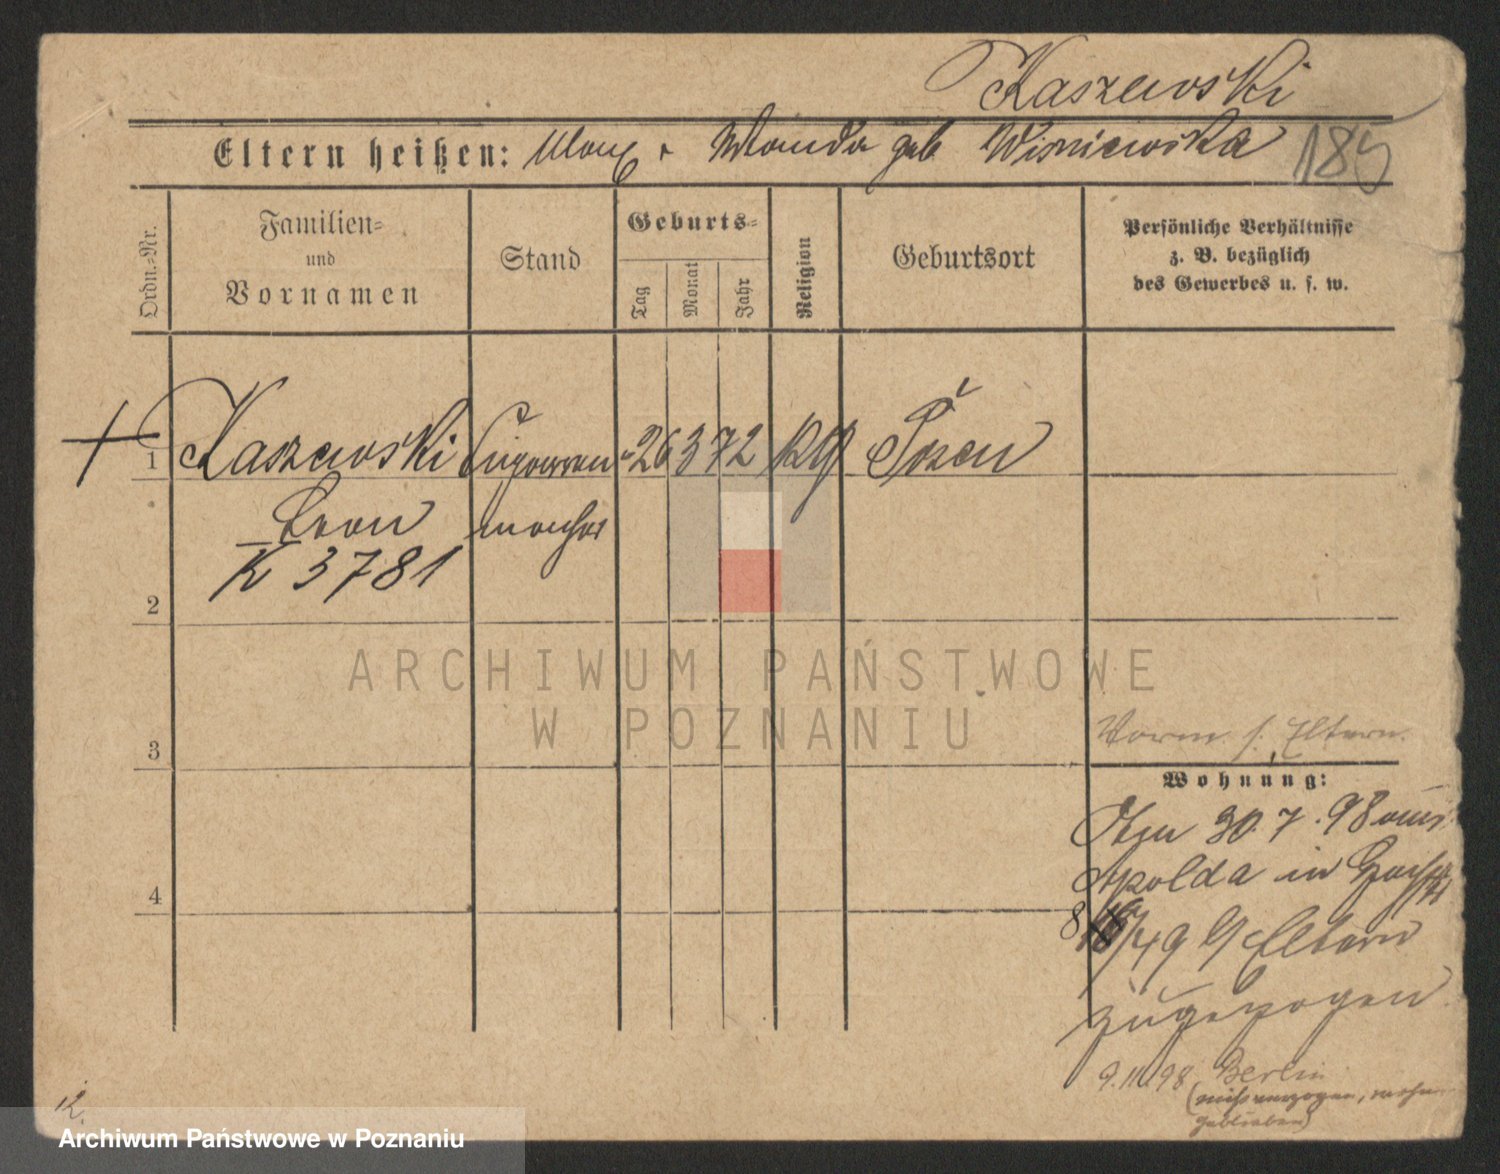 Kaszewski
Eltern heißen: Max & Wanda geb Wisniewska 185
Ordn.-Nr.
Familien-
und
Vornamen
Stand
Geburts-
Tag
Monat
Jahr
Religion
Geburtsort
Persönliche Verhältnisse
z. B. bezüglich
des Gewerbes u. s. w.
1 Kaszewski Cigarren- 26 3 72 Posen
Leon macher
K 3781
2
3
4
ARCHIWUM PAŃSTWOWE
W POZNANIU
Vorm. s. Eltern.
Wohnung:
30.7.98 aus
Apolda in
Eltern
zugezogen
9.11.98 Berlin
(nicht verzogen,
geblieben)
12.
Archiwum Państwowe w Poznaniu